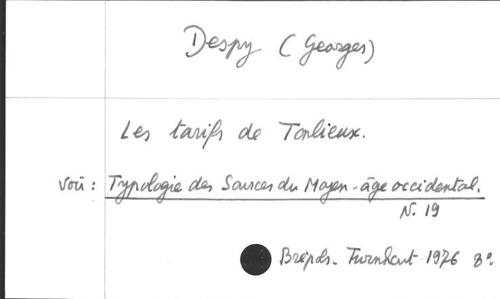 Despy (Georges)
Les tarifs de Tonlieux.
Voir : Typologie des Sources du Moyen-âge occidental.
N. 19
Brépols - Turnhout 1976 8°.